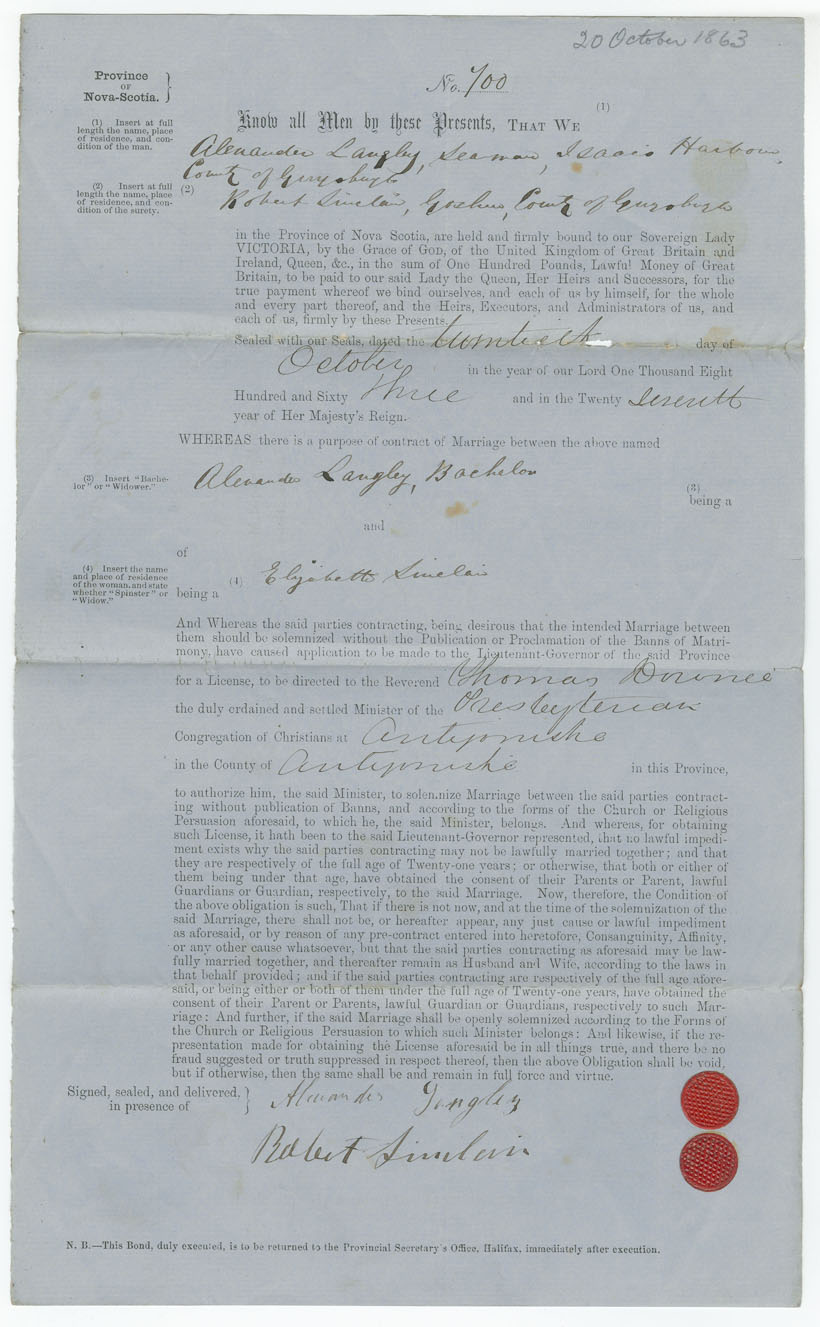 20 October 1863
Province
OF
Nova-Scotia.
No. 700
(1)
Know all Men by these Presents, THAT WE
(1) Insert at full
length the name, place
of residence, and con-
dition of the man.
Alexander Langley, Seaman, Isaacs Harbour,
County of Guysbugh
(2) Insert at full
length the name, place
of residence, and con-
dition of the surety.
(2)
Robert Sinclair, Goshen, County of Guysbugh
in the Province of Nova Scotia, are held and firmly bound to our Sovereign Lady
VICTORIA, by the Grace of GOD, of the United Kingdom of Great Britain and
Ireland, Queen, &c., in the sum of One Hundred Pounds, Lawful Money of Great
Britain, to be paid to our said Lady the Queen, Her Heirs and Successors, for the
true payment whereof we bind ourselves, and each of us by himself, for the whole
and every part thereof, and the Heirs, Executors, and Administrators of us, and
each of us, firmly by these Presents.
Sealed with our Seals, dated the twentieth day of
October in the year of our Lord One Thousand Eight
Hundred and Sixty three and in the Twenty seventh
year of Her Majesty's Reign.
WHEREAS there is a purpose of contract of Marriage between the above named
(3) Insert "Bache-
lor" or "Widower."
Alexander Langley, Bachelor
(3)
being a
and
of
(4) Insert the name
and place of residence
of the woman, and state
whether "Spinster" or
"Widow."
(4) Elizabeth Sinclair
being a
And Whereas the said parties contracting, being desirous that the intended Marriage between
them should be solemnized without the Publication or Proclamation of the Banns of Matri-
mony, have caused application to be made to the Lieutenant-Governor of the said Province
for a License, to be directed to the Reverend Thomas Downie
the duly ordained and settled Minister of the Presbyterian
Congregation of Christians at Antigonishe
in the County of Antigonishe in this Province,
to authorize him, the said Minister, to solemnize Marriage between the said parties contract-
ing without publication of Banns, and according to the forms of the Church or Religious
Persuasion aforesaid, to which he, the said Minister, belongs. And whereas, for obtaining
such License, it hath been to the said Lieutenant-Governor represented, that no lawful impedi-
ment exists why the said parties contracting may not be lawfully married together; and that
they are respectively of the full age of Twenty-one years; or otherwise, that both or either of
them being under that age, have obtained the consent of their Parents or Parent, lawful
Guardians or Guardian, respectively, to the said Marriage. Now, therefore, the Condition of
the above obligation is such, That if there is not now, and at the time of the solemnization of the
said Marriage, there shall not be, or hereafter appear, any just cause or lawful impediment
as aforesaid, or by reason of any pre-contract entered into heretofore, Consanguinity, Affinity,
or any other cause whatsoever, but that the said parties contracting as aforesaid may be law-
fully married together, and thereafter remain as Husband and Wife, according to the laws in
that behalf provided; and if the said parties contracting are respectively of the full age afore-
said, or being either or both of them under the full age of Twenty-one years, have obtained the
consent of their Parent or Parents, lawful Guardian or Guardians, respectively to such Mar-
riage: And further, if the said Marriage shall be openly solemnized according to the Forms of
the Church or Religious Persuasion to which such Minister belongs: And likewise, if the re-
presentation made for obtaining the License aforesaid be in all things true, and there be no
fraud suggested or truth suppressed in respect thereof, then the above Obligation shall be void,
but if otherwise, then the same shall be and remain in full force and virtue.
Signed, sealed, and delivered,
in presence of
Alexander Langley
Robert Sinclair
N. B.—This Bond, duly executed, is to be returned to the Provincial Secretary's Office, Halifax, immediately after execution.